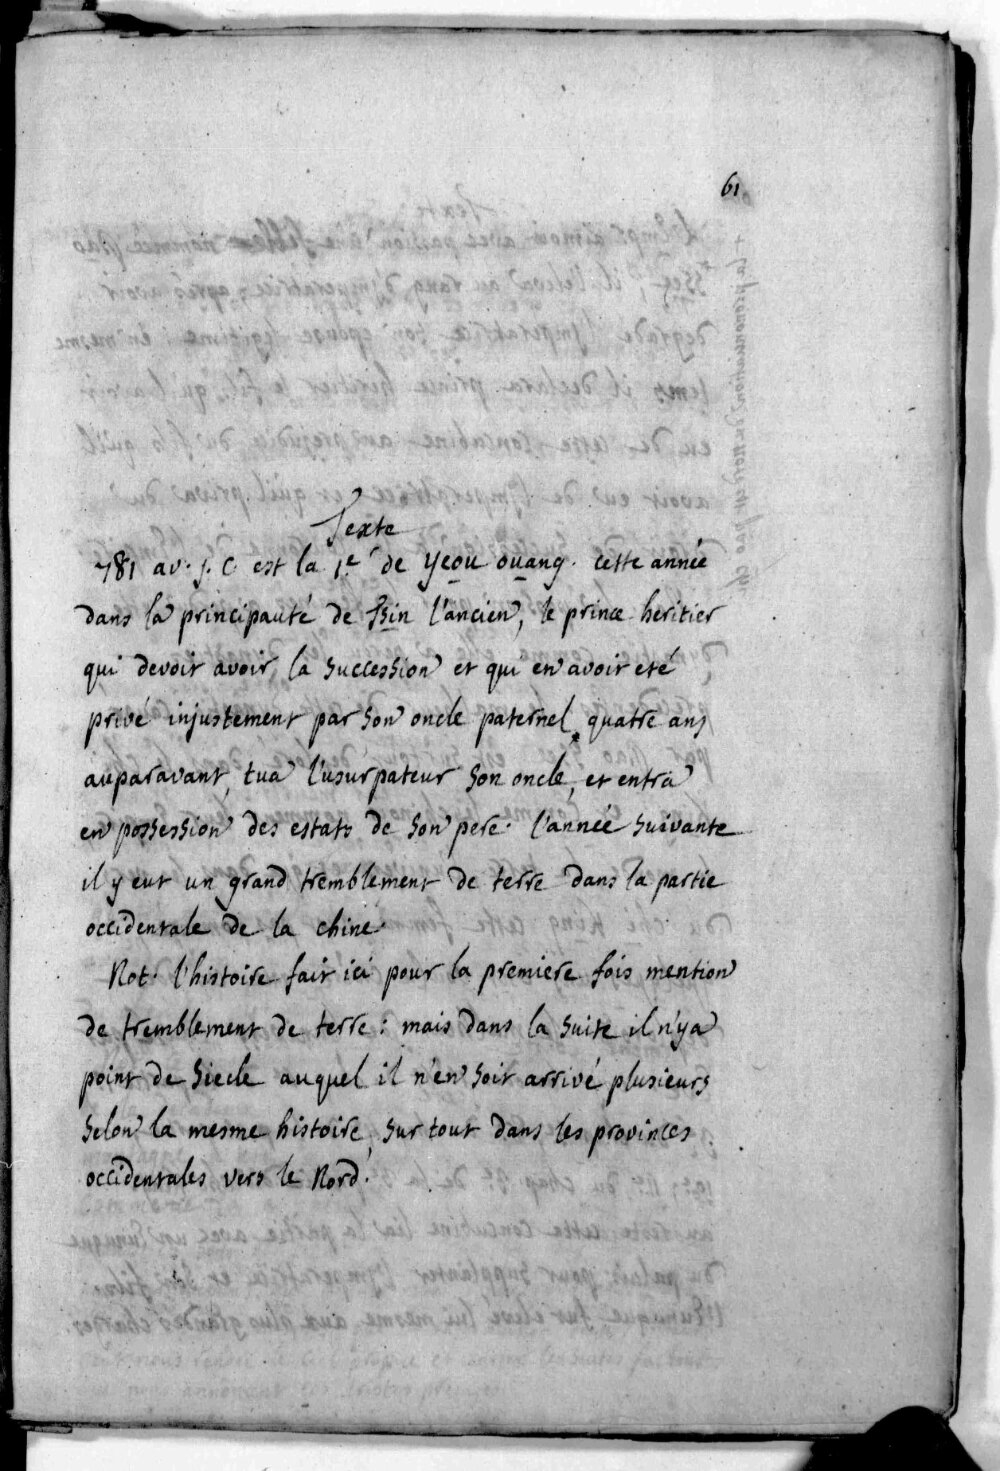 61
Texte
781 av. J. C. est la 1.e de Yeou ouang. cette année
dans la principauté de Tsin l'ancien, le prince heritier
qui devoit avoir la succession et qui en avoit eté
privé injustement par son oncle paternel quatre ans
auparavant, tua l'usurpateur son oncle, et entra
en possession des estats de son pere. l'année suivante
il y eut un grand tremblement de terre dans la partie
occidentale de la chine.
Not. l'histoire fait ici pour la premiere fois mention
de tremblement de terre : mais dans la suite il n'y a
point de siecle auquel il n'en soit arrivé plusieurs
selon la mesme histoire, sur tout dans les provinces
occidentales vers le Nord.